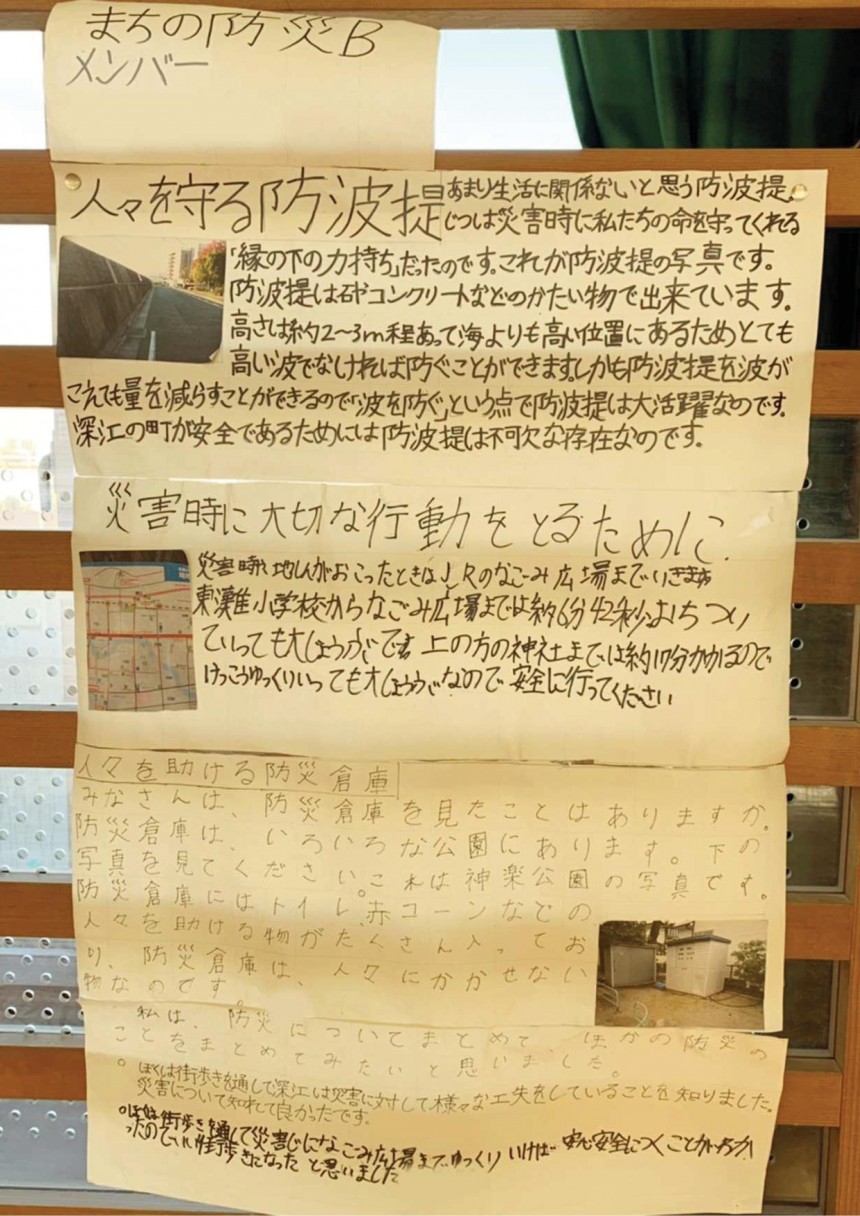 まちの防災B
メンバー
人々を守る防波提
あまり生活に関係ないと思う防波提。
じつは災害時に私たちの命を守ってくれる
「縁の下の力持ち」だったのです。これが防波提の写真です。
防波提は石やコンクリートなどのかたい物で出来ています。
高さは約2～3m程あって海よりも高い位置にあるためとても
高い波でなければ防ぐことができます。しかも防波提を波が
こえても量を減らすことができるので「波を防ぐ」という点で防波提は大活躍なのです。
深江の町が安全であるためには防波提は不可欠な存在なのです。
災害時に大切な行動をとるために
災害時、地しんがおこったときはJRのなごみ広場までいきます
東灘小学校からなごみ広場までは約6分42秒おちつい
ていっても大じょうぶです 上の方の神社までは約17分かかるので
けっこうゆっくりいっても大じょうぶなので安全に行ってください
人々を助ける防災倉庫
みなさんは、防災倉庫を見たことはありますか。
防災倉庫は、いろいろな公園にあります。下の
写真を見てください。これは神楽公園の写真です。
防災倉庫にはトイレ、赤コーンなどの
人々を助ける物がたくさん入ってお
り、防災倉庫は、人々にかかせない
物なのです。
私は、防災についてまとめて、ほかの防災の
ことをまとめてみたいと思いました。
ぼくは街歩きを通して深江は災害に対して様々な工夫をしていることを知りました。
災害について知れて良かったです。
ぼくは街歩きを通して災害じになごみ広場までゆっくりいけば安心安全につくことがわか
ったのでいい街歩きになったと思いました